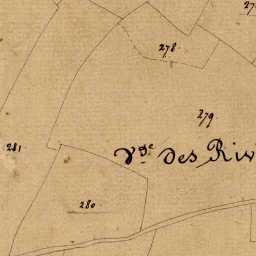 278
279
281
V.de des Riv
280